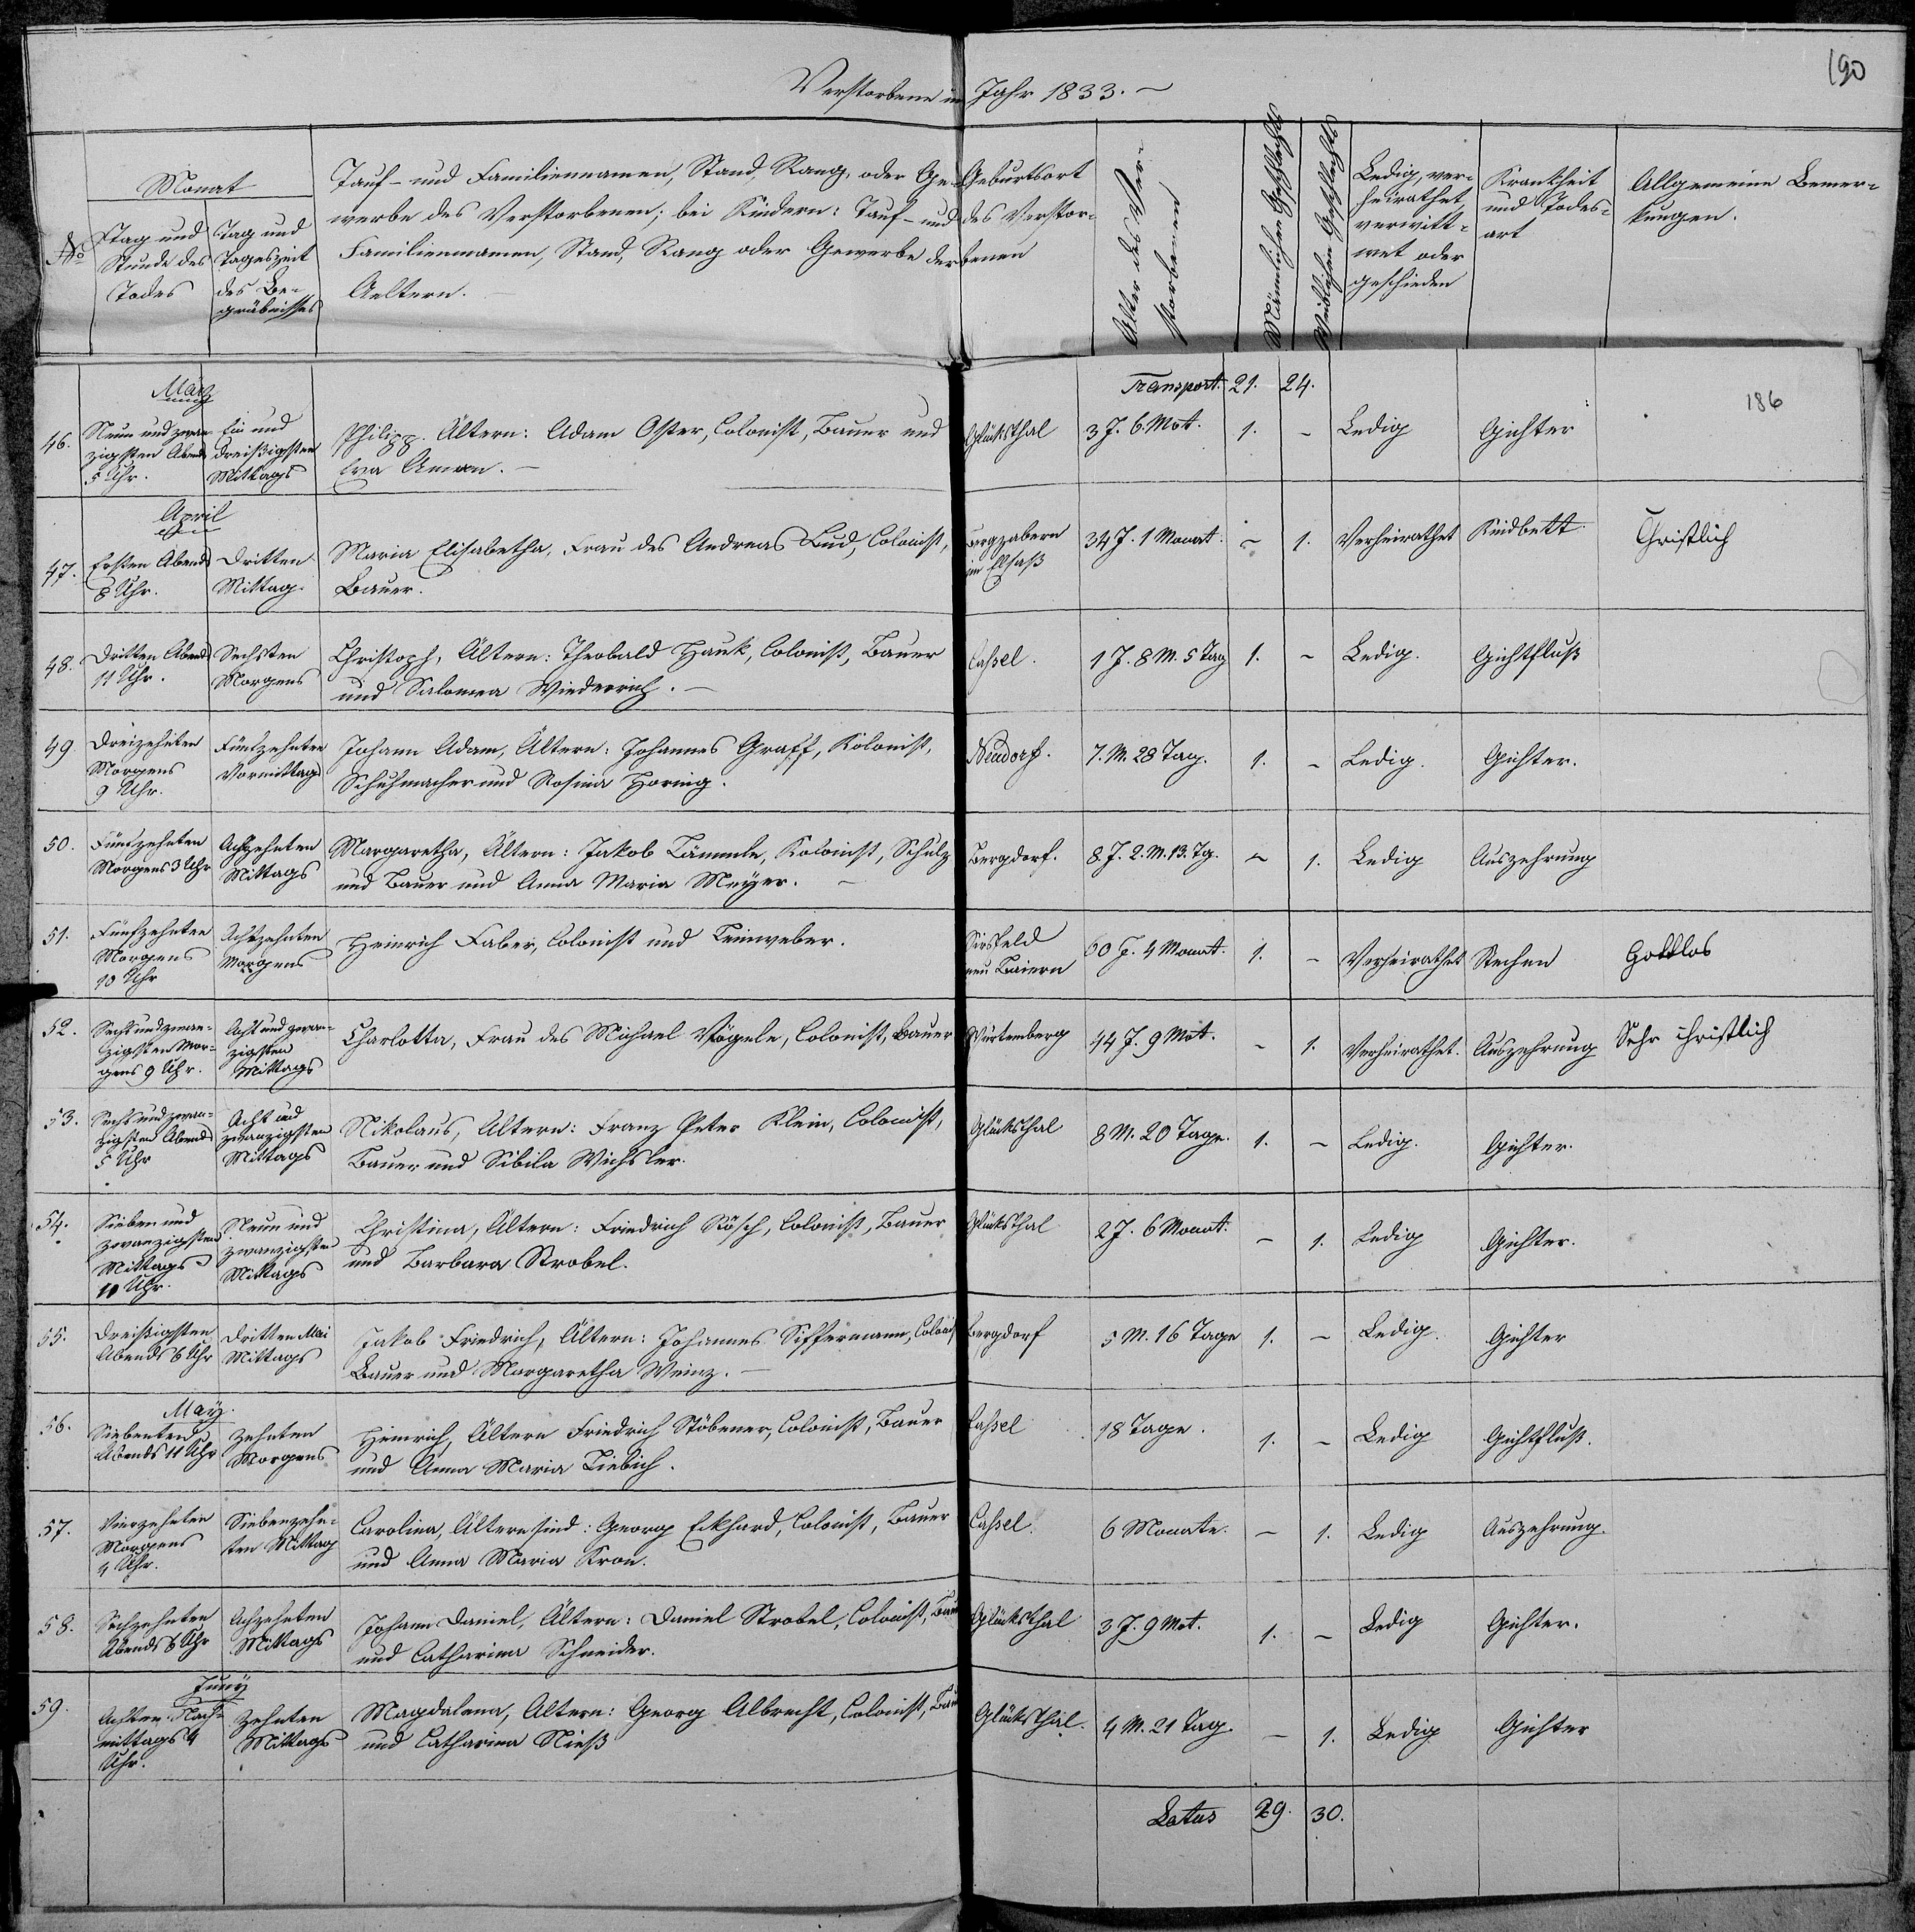 190
Verstorbene im Jahr 1833.
No
Monat
Tag und Stunde des Todes
Tag und Tageszeit des Begräbnisses
Tauf- und Familiennamen, Stand, Rang, oder Ge-
werbe des Verstorbenen; bei Kindern: Tauf- und
Familiennamen, Stand, Rang oder Gewerbe der
Aeltern.
Geburtsort
des Verstor-
benen
Alter des Ver-
storbenen
Männlichen Geschlechts
Weiblichen Geschlechts
Ledig, ver-
heirathet,
verwitt-
wet oder
geschieden
Krankheit
und Todes-
art
Allgemeine Bemer-
kungen.
Transport. 21. 24.
186
März
46. Neun und zwan- zigsten Abends 5 Uhr. Ein und dreißigsten Mittags
Philipp. Ältern: Adam Oster, Colonist, Bauer und
Eva Aman. Glücksthal 3 J. 6. Mot. 1. - Ledig Gichter
April
47. Ersten Abends 8 Uhr. Dritten Mittag.
Maria Elisabetha, Frau des Andreas Bud, Colonist,
Bauer. Bergzabern im Elsaß 34 J. 1 Monat. - 1. Verheirathet Kindbett Christlich
48. Dritten Abends 11 Uhr. Sechsten Morgens
Christoph, Ältern: Theobald Hauk, Colonist, Bauer
und Salomea Wiederrich. Cassel. 1 J. 8 M. 5 Tag 1. - Ledig. Gichtfluß
49. Dreizehnten Morgens 9 Uhr. Fünfzehnten Vormittag
Johann Adam, Ältern: Johannes Graff, Kolonist,
Schuhmacher und Rosina Horing. Neudorf. 7. M. 28 Tag. 1. - Ledig. Gichter.
50. Fünfzehnten Morgens 3 Uhr Achzehnten Mittags
Margaretha, Ältern: Jakob Lämmle, Kolonist, Schulz
und Bauer und Anna Maria Meyer. Bergdorf. 8. J. 2. M. 13. Tg. - 1. Ledig Auszehrung
51. Fünfzehnten Morgens 10 Uhr Achtzehnten Morgens
Heinrich Faber, Colonist und Leinweber. neu Baiern 60 J. 4 Monat. 1. - Verheirathet Stechen Gottlos
52. Sechs und zwan- zigsten Mor- gens 9 Uhr. Acht und zwan- zigsten Mittags
Charlotta, Frau des Michael Vögele, Colonist, Bauer Würtemberg 44 J. 9 Mot. - 1. Verheirathet. Auszehrung Sehr christlich
53. Sechs und zwan- zigsten Abends 5 Uhr Acht und zwanzigsten Mittags
Nikolaus, Altern: Franz Peter Klein, Colonist,
Bauer und Sibila Wichsler. Glücksthal 8 M. 20 Tage. 1. - Ledig. Gichter.
54. Sieben und zwanzigsten Mittags 11 Uhr. Neun und zwanzigsten Mittags
Christina, Ältern: Friedrich Rösch, Colonist, Bauer
und Barbara Strobel. Glücksthal 2 J. 6 Monat. - 1. Ledig Gichter.
55. Dreißigsten Abends 6 Uhr Dritten Mai Mittags
Jakob Friedrich, Ältern: Johannes Siffermann, Colonist
Bauer und Margaretha Weinz. Bergdorf 5 M. 16 Tage 1. - Ledig. Gichter
May.
56. Siebenten Abends 11 Uhr Zehnten Morgens
Heinrich, Ältern Friedrich Stöbener, Colonist, Bauer
und Anna Maria Liebich. Cassel 18 Tage. 1. - Ledig Gichtfluß.
57. Vierzehnten Morgens 4 Uhr. Siebenzehn- ten Mittag
Carolina, Ältern sind: Georg Eckhard, Colonist, Bauer
und Anna Maria Kron. Cassel. 6 Monate. - 1. Ledig Auszehrung.
58. Sechzehnten Abends 6 Uhr Achzehnten Mittags
Johann Daniel, Ältern: Daniel Strobel, Colonist, Bau
und Catharina Schneider. Glücksthal 3 J. 9 Mot. 1. - Ledig Gichter.
Juny
59. Achten Nach- mittags 4 Uhr. Zehnten Mittags
Magdalena, Altern: Georg Albrecht, Colonist, Bau
und Catharina Nieß Glücksthal. 4 M. 21 Tag. - 1. Ledig Gichter
Latus 29. 30.